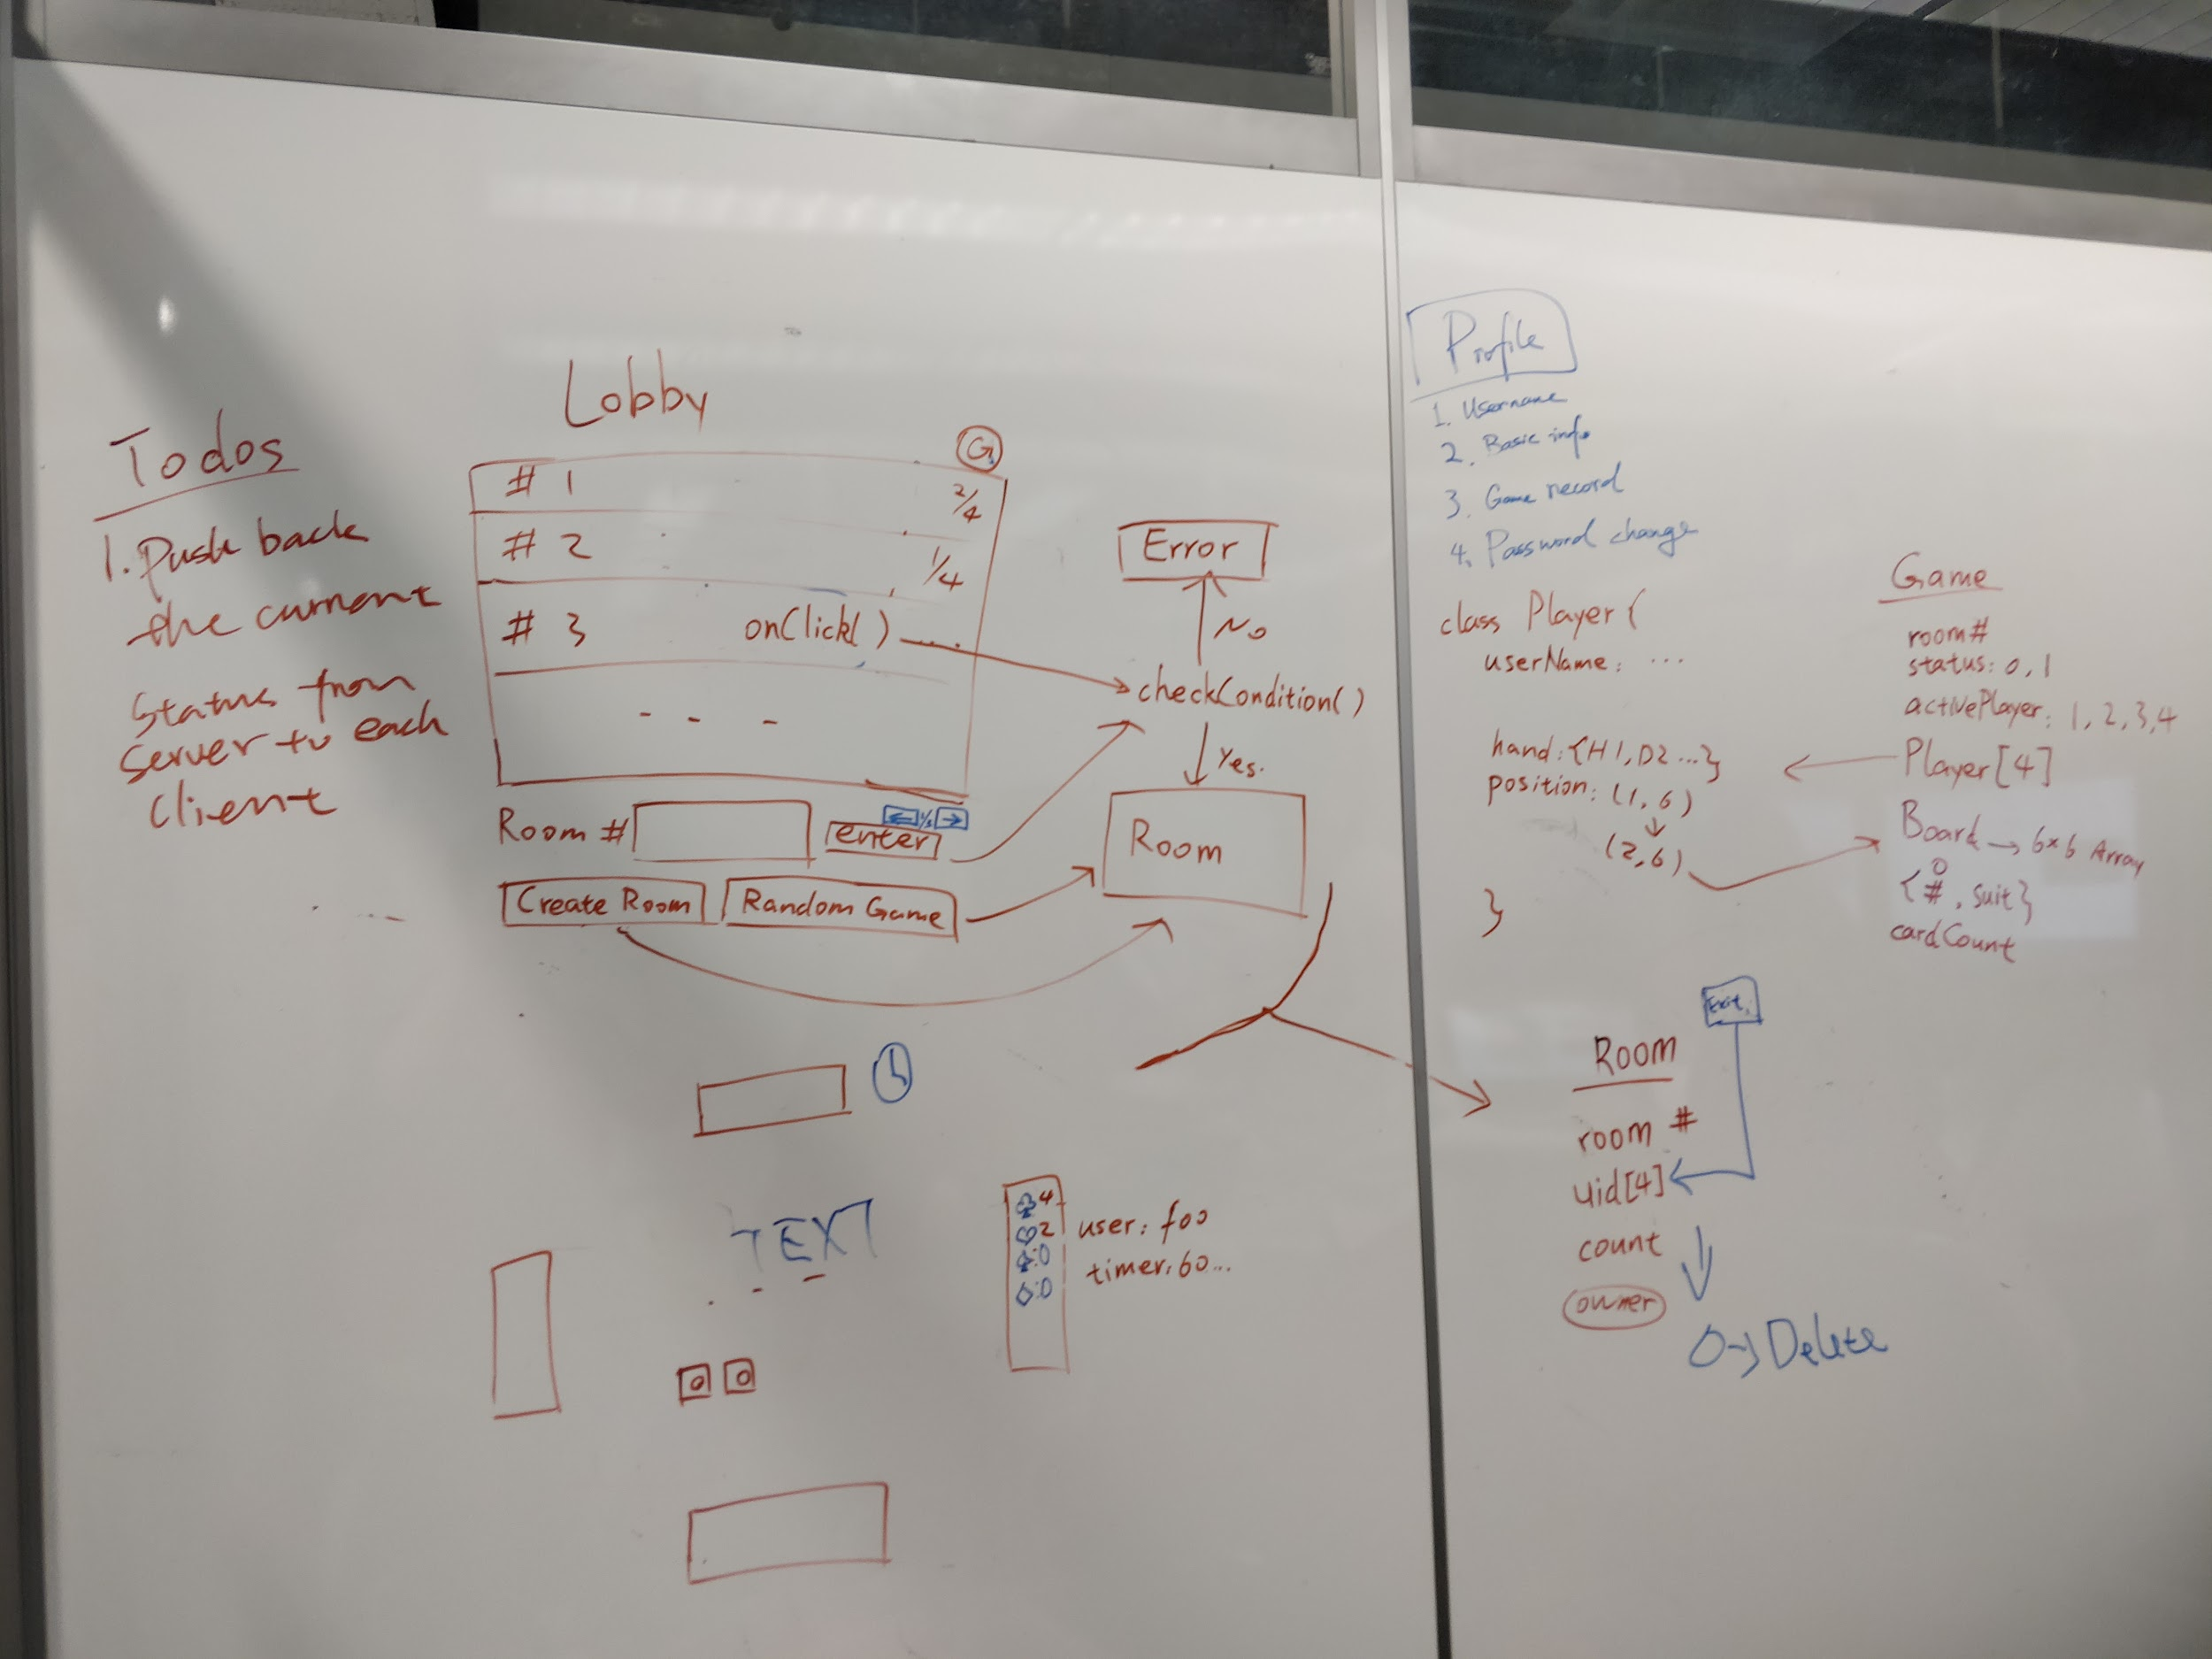 Todos
1. Push back
the current
Status from
server to each
client
Lobby
G
# 1 2/4
# 2 1/4
# 3 onClick()
- - -
Room # enter
← 1/3 →
Create Room Random Game
Error
No
checkCondition()
Yes.
Room
TEXT
♣4
♡2
♠:0
◇:0
user: foo
timer: 60...
Profile
1. Username
2. Basic info
3. Game record
4. Password change
class Player {
userName: ...
hand: {H1, D2 ...}
position: (1, 6)
↓
(2, 6)
}
Game
room#
status: 0, 1
activePlayer: 1, 2, 3, 4
Player[4]
Board → 6×6 Array
0
{#, suit}
cardCount
Exit
Room
room #
uid[4]
count
owner
0→Delete